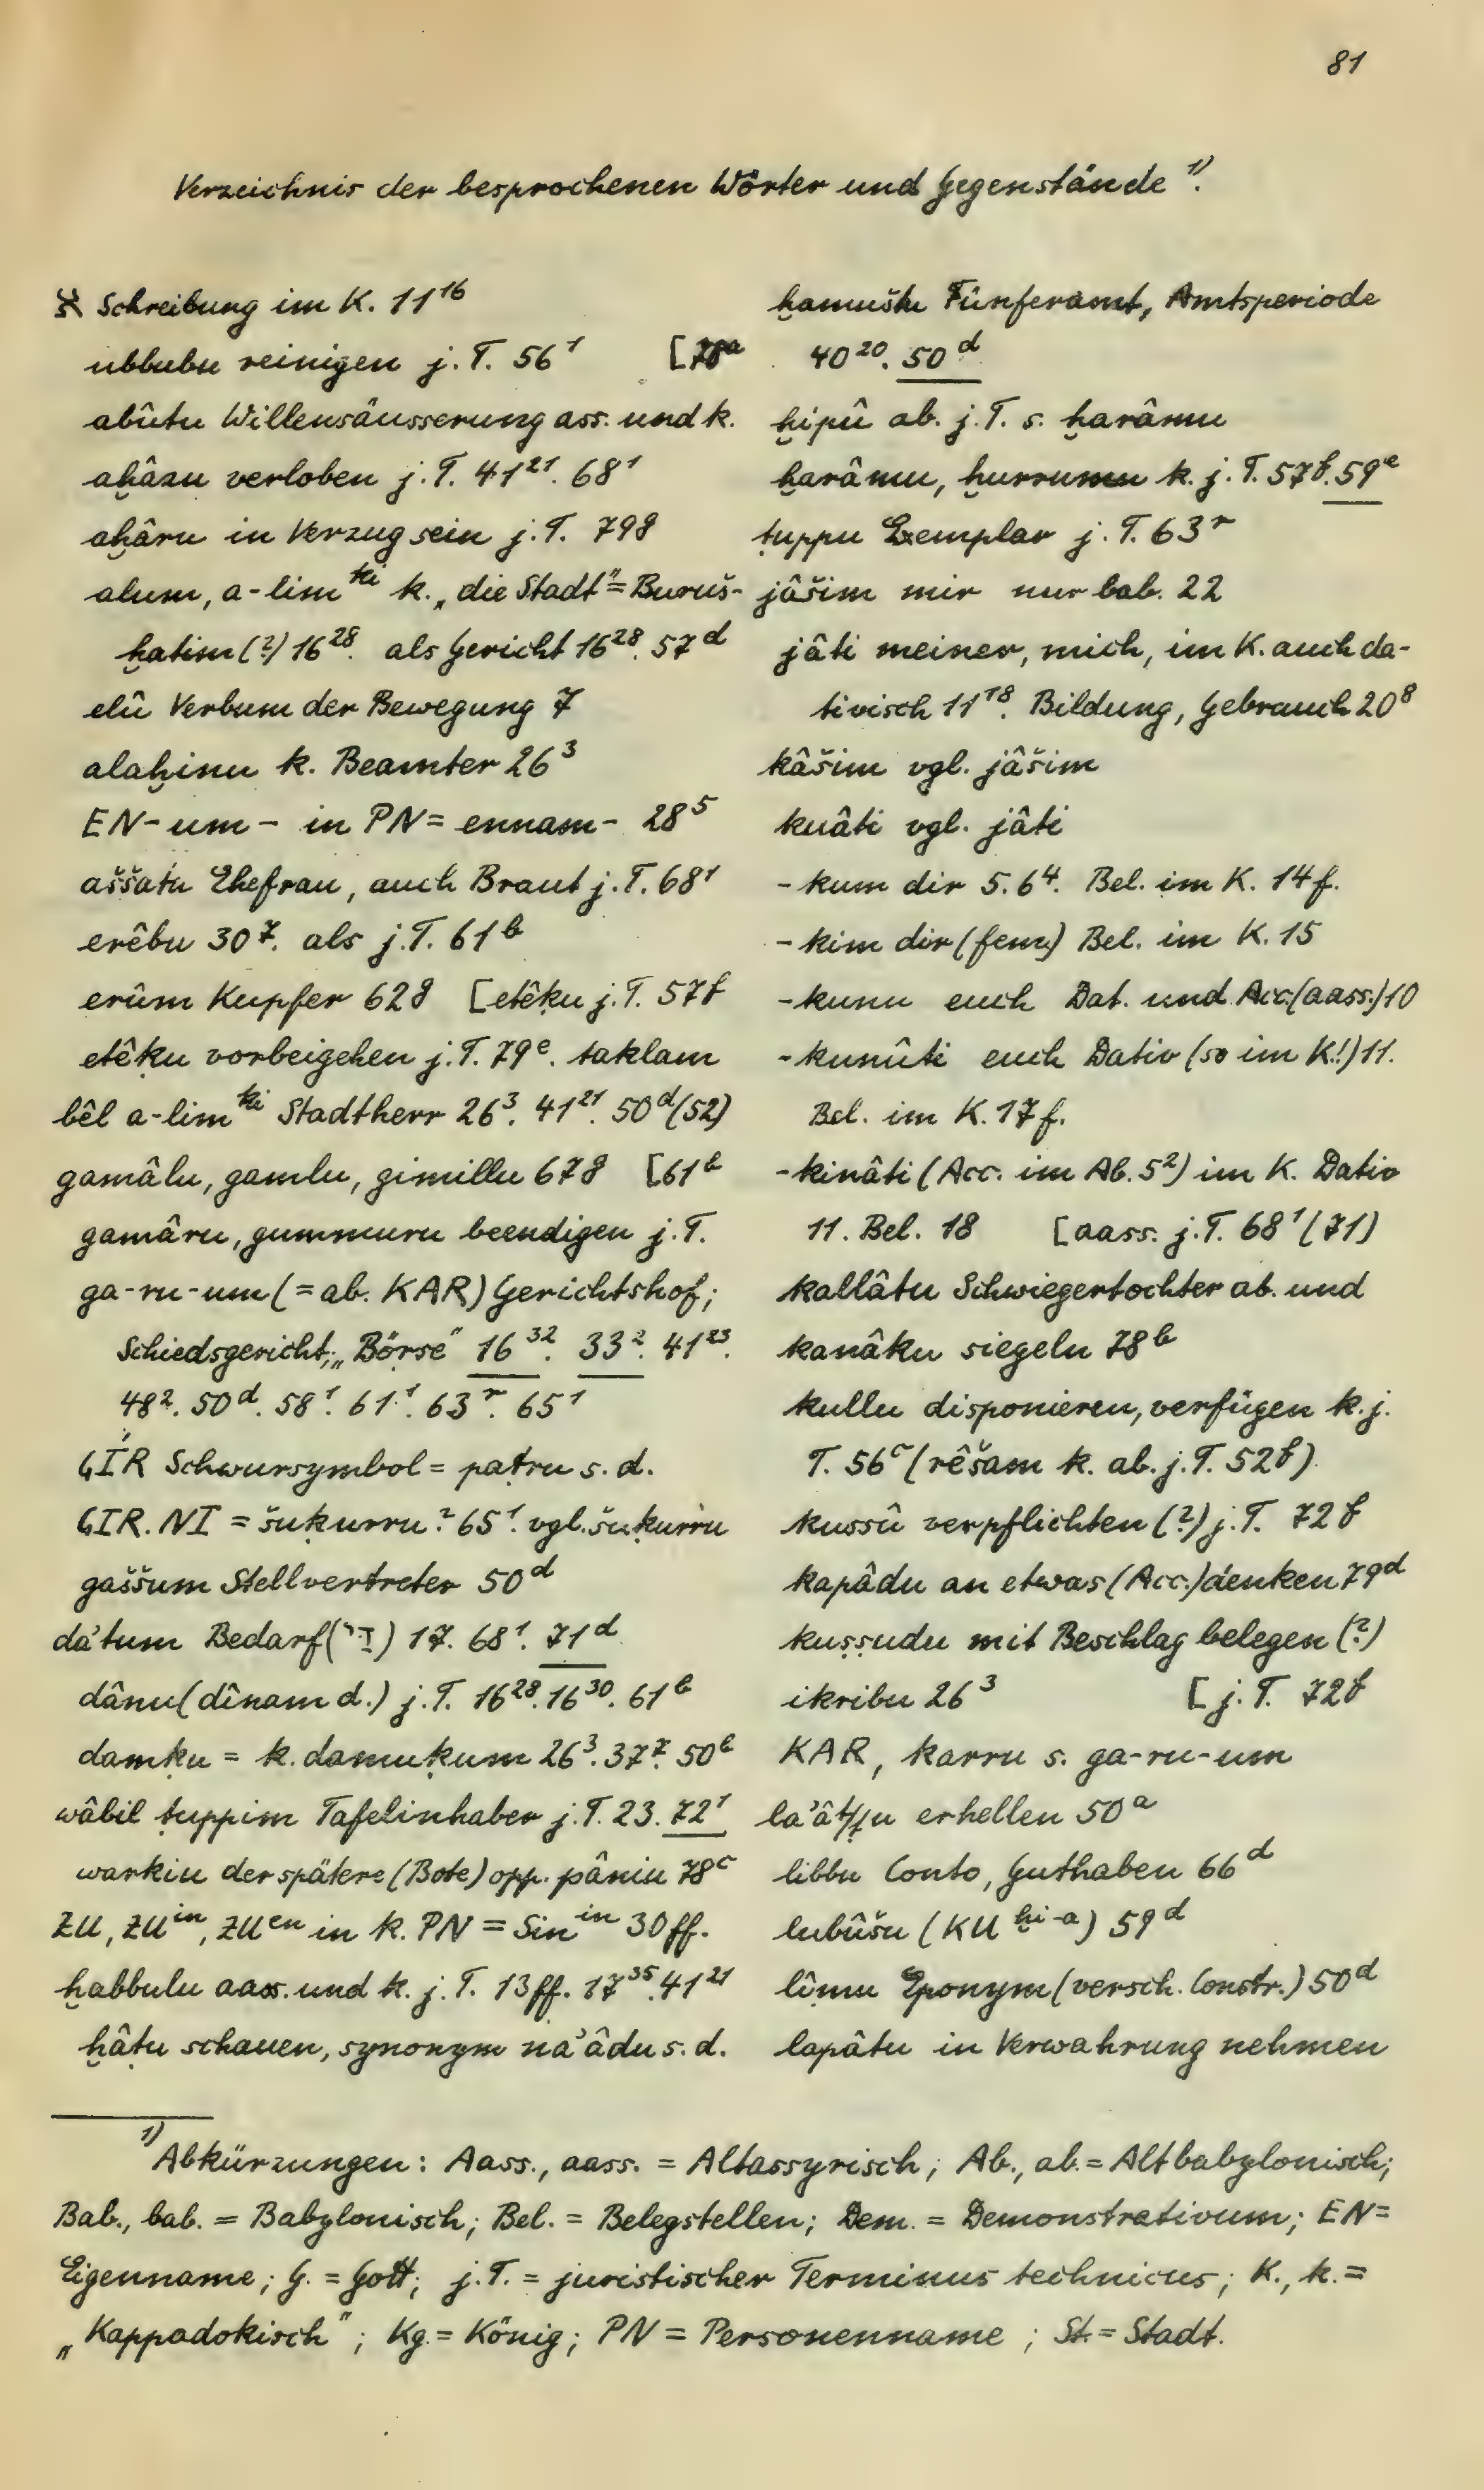 81
Verzeichnis der besprochenen Wörter und Gegenstände ¹⁾.
א Schreibung im K. 11¹⁶
ubbubu reinigen j. T. 56¹ [78ᵃ
abûtu Willensäusserung ass. und k.
aḫâzu verloben j. T. 41²¹. 68¹
aḫâru in Verzug sein j. T. 79g
alum, a-lim ᵏⁱ k. „die Stadt" = Buruš-
ḫatim (?) 16²⁸. als Gericht 16²⁸. 57ᵈ
elû Verbum der Bewegung 7
alaḫinu k. Beamter 26³
EN-um- in PN = ennam- 28⁵
aššatu Ehefrau, auch Braut j. T. 68¹
erêbu 30⁷. als j. T. 61ᵇ
erûm Kupfer 62g [etêḳu j. T. 57f
etêḳu vorbeigehen j. T. 79ᵉ. taklam
bêl a-lim ᵏⁱ Stadtherr 26³. 41²¹. 50ᵈ (52)
gamâlu, gamlu, gimillu 67g [61ᵇ
gamâru, gummuru beendigen j. T.
ga-ru-um (= ab. KAR) Gerichtshof;
Schiedsgericht, „Börse" 16³². 33². 41²³.
48². 50ᵈ. 58¹. 61¹. 63ʳ. 65¹
GÍR Schwursymbol = paṭru s. d.
GIR. NI = šuḳurru? 65¹. vgl. šuḳurru
gaššum Stellvertreter 50ᵈ
da'tum Bedarf ( ) 17. 68¹. 71ᵈ
dânu (dînam d.) j. T. 16²⁸. 16³⁰. 61ᵇ
damḳu = k. damuḳum 26³. 37⁷. 50ᵇ
wâbil ṭuppim Tafelinhaber j. T. 23. 72¹
warkiu der spätere (Bote) opp. pâniu 78ᶜ
ZU, ZUⁱⁿ, ZUᵉⁿ in k. PN = Sinⁱⁿ 30ff.
ḫabbulu aass. und k. j. T. 13ff. 17³⁵. 41²¹
ḫâtu schauen, synonym na'âdu s. d.
ḫamuštu Fünferamt, Amtsperiode
40²⁰. 50ᵈ
ḫipû ab. j. T. s. ḫarâmu
ḫarâmu, ḫurrumu k. j. T. 57f. 59ᵉ
ṭuppu Exemplar j. T. 63ʳ
jâšim mir nur bab. 22
jâti meiner, mich, im K. auch da-
tivisch 11¹⁸. Bildung, Gebrauch 20⁸
kâšim vgl. jâšim
kuâti vgl. jâti
-kum dir 5. 6⁴. Bel. im K. 14f.
-kim dir (fem.) Bel. im K. 15
-kunu euch Dat. und Acc. (aass.) 10
-kunûti euch Dativ (so im K.!) 11.
Bel. im K. 17f.
-kinâti (Acc. im Ab. 5²) im K. Dativ
11. Bel. 18 [aass. j. T. 68¹ (71)
kallâtu Schwiegertochter ab. und
kanâku siegeln 78ᵇ
kullu disponieren, verfügen k. j.
T. 56ᶜ (rêšam k. ab. j. T. 52f)
kussû verpflichten (?) j. T. 72f
kapâdu an etwas (Acc.) denken 79ᵈ
kuṣṣudu mit Beschlag belegen (?)
ikribu 26³ [j. T. 72f
KAR, karru s. ga-ru-um
la'âṭ/tu erhellen 50ᵃ
libbu Conto, Guthaben 66ᵈ
lubûšu (KU ḫⁱ⁻ᵃ) 59ᵈ
lîmu Eponym (versch. Constr.) 50ᵈ
lapâtu in Verwahrung nehmen
¹⁾ Abkürzungen: Aass., aass. = Altassyrisch; Ab., ab. = Altbabylonisch;
Bab., bab. = Babylonisch; Bel. = Belegstellen; Dem. = Demonstrativum; EN =
Eigenname; G. = Gott; j. T. = juristischer Terminus technicus; K., k. =
„Kappadokisch"; Kg. = König; PN = Personenname; St. = Stadt.